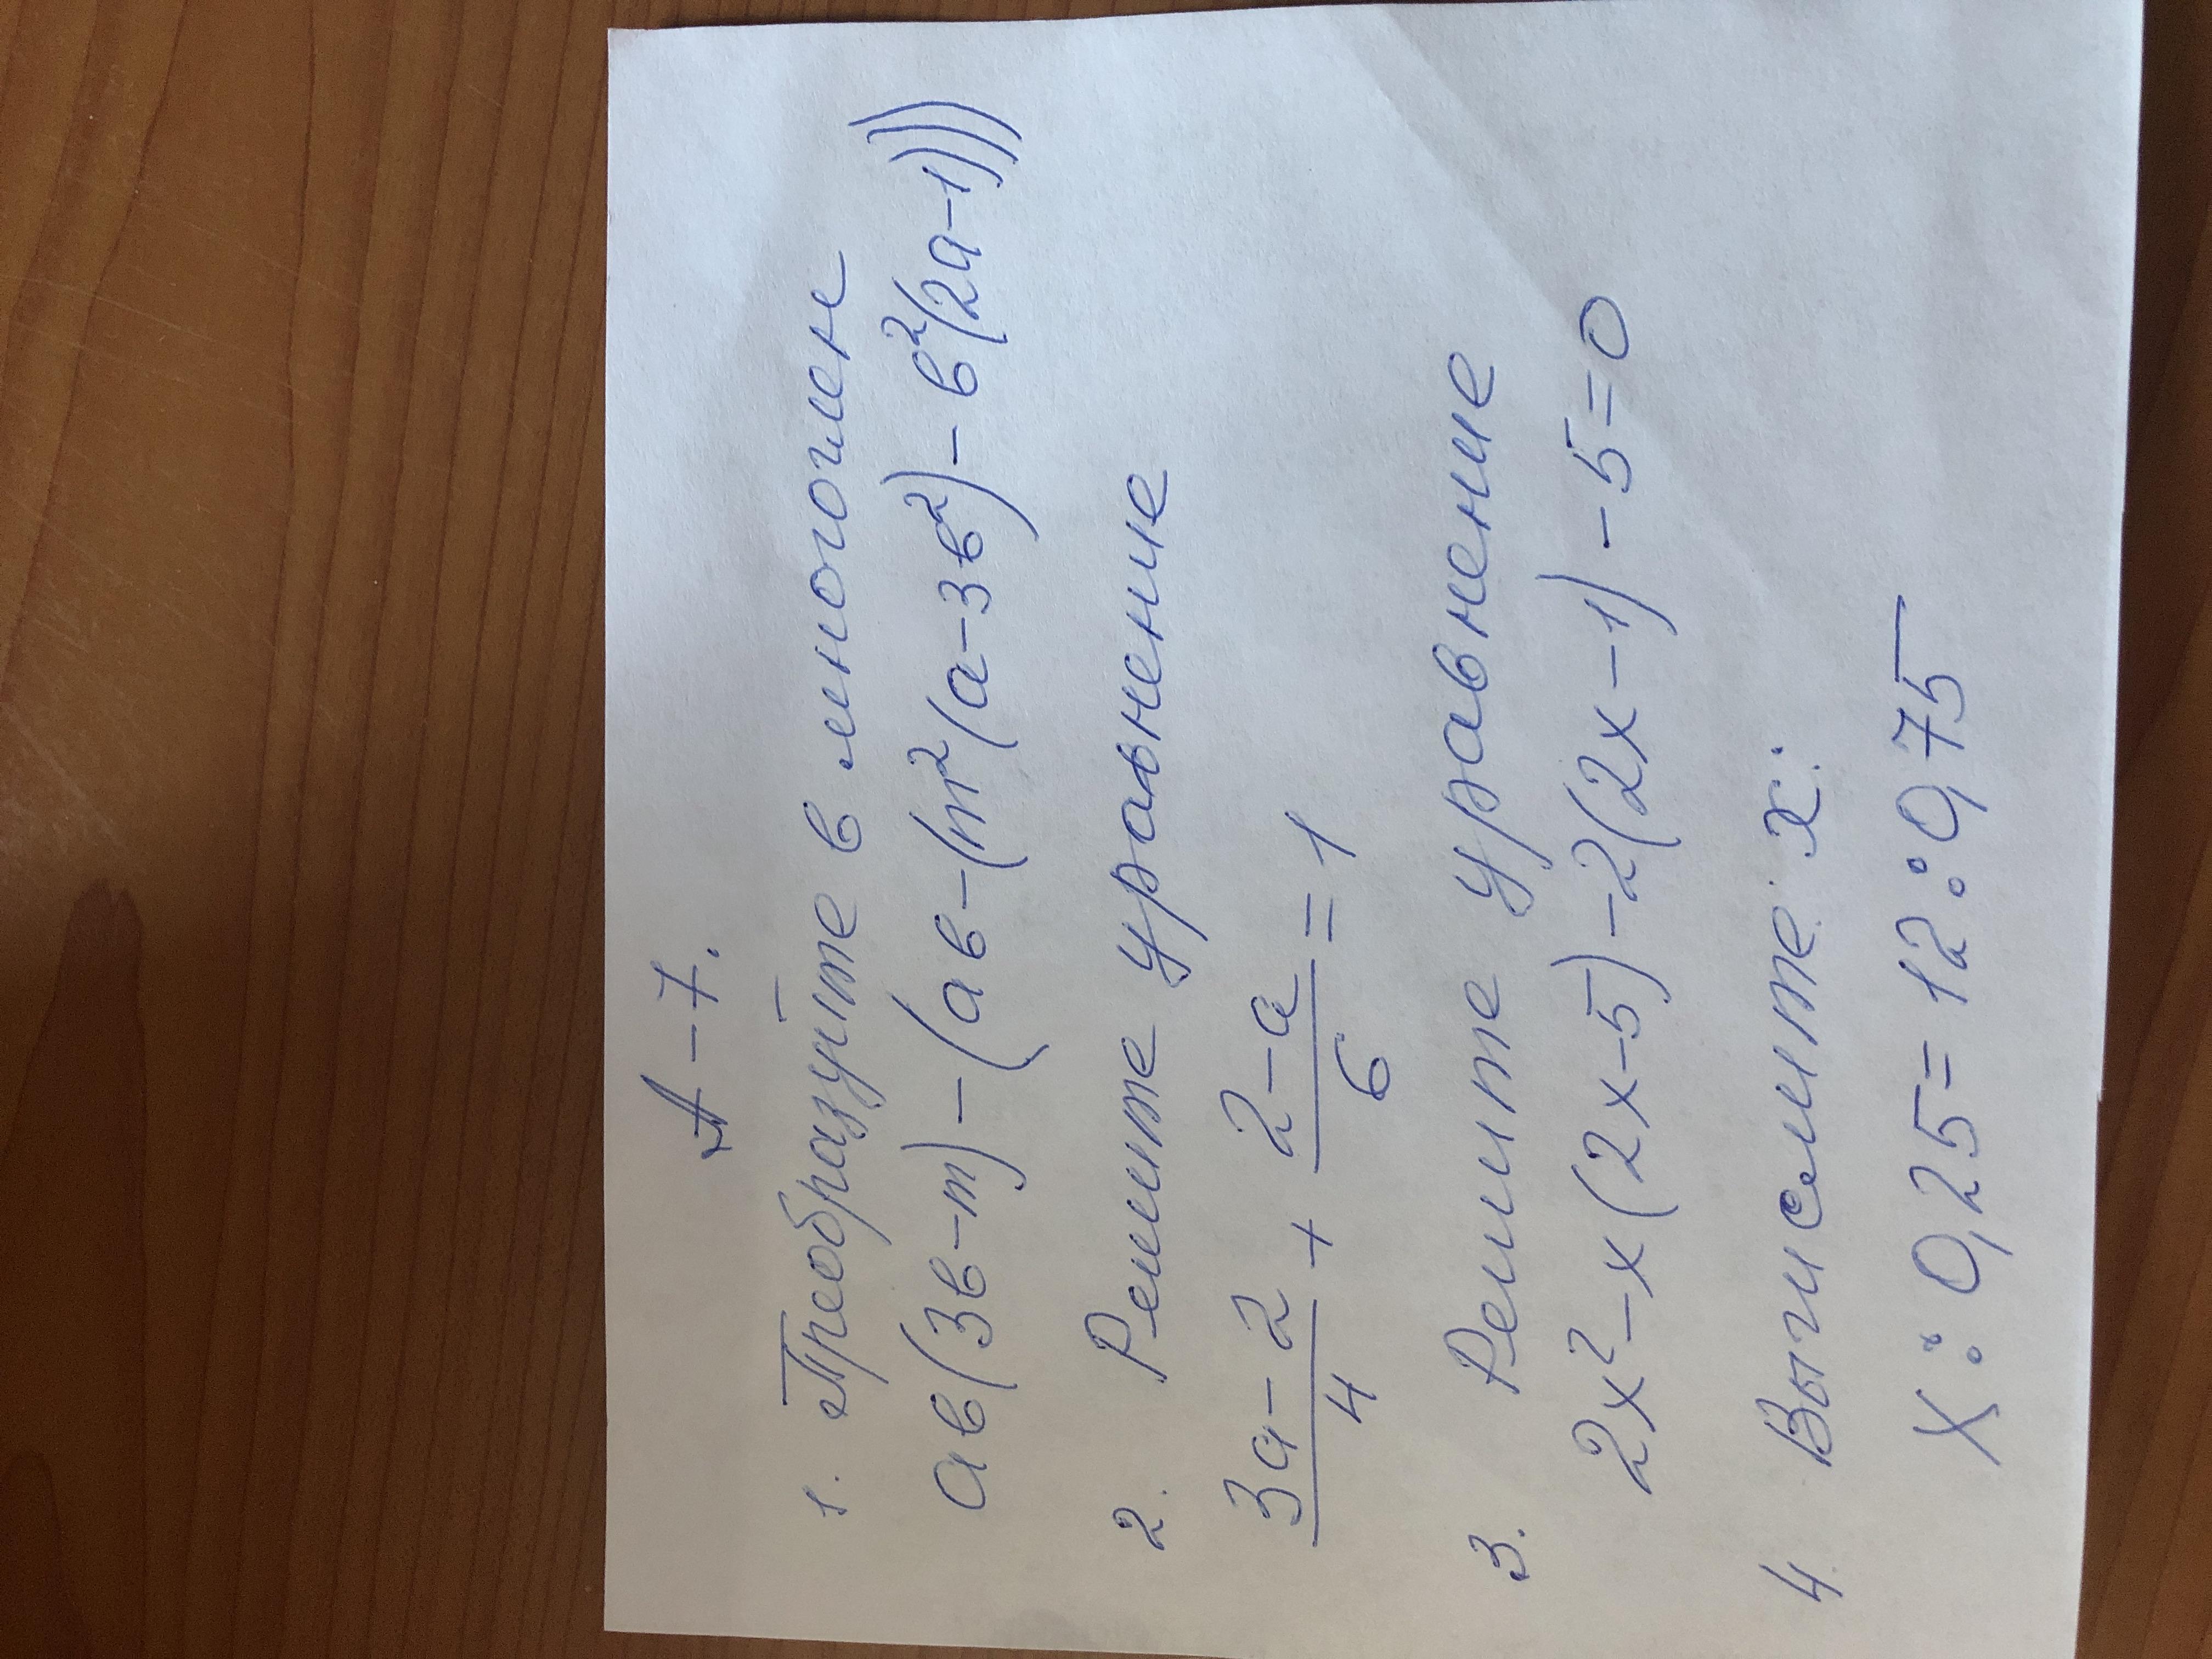 А-7.
1. Преобразуйте в многочлен
ав(3в-m)-(ав-(m²(а-3в²)-в²(2а-1)))
2. Решите уравнение
(3а-2)/4 + (2-а)/6 = 1
3. Решите уравнение
2x²-x(2x-5)-2(2x-1)-5=0
4. Вычислите x:
x:0,25=12:0,75